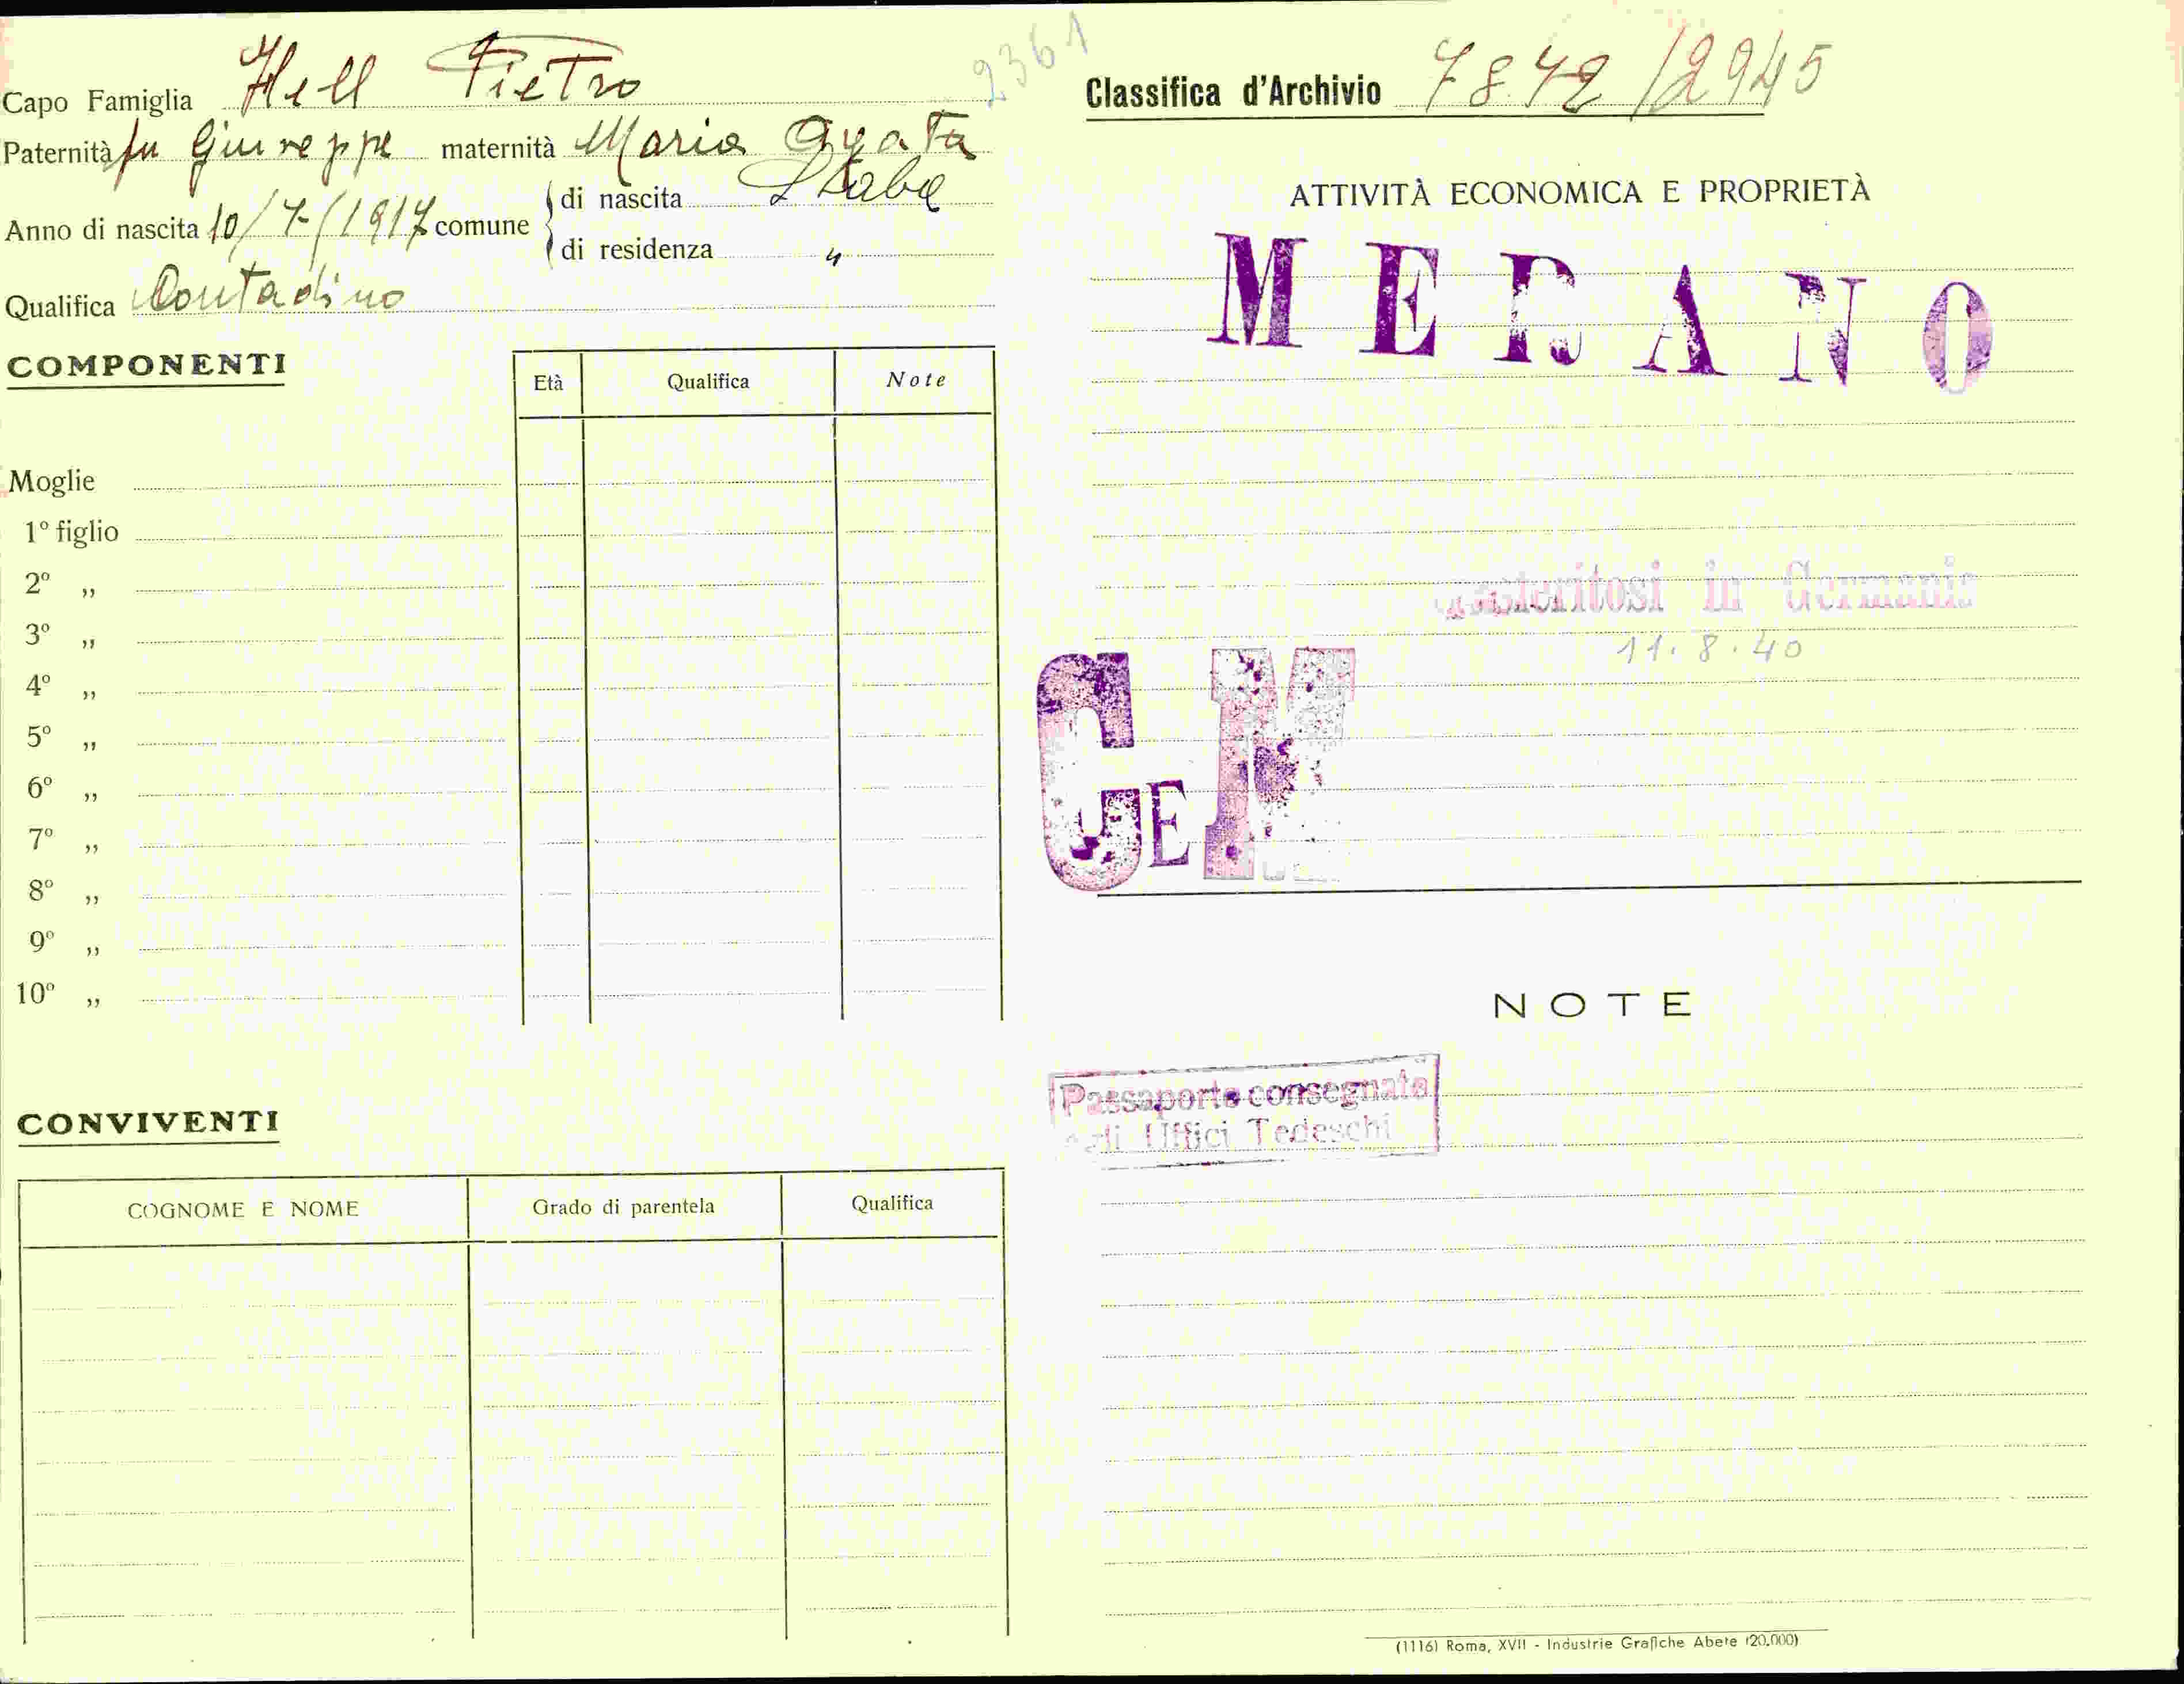 Capo Famiglia Hell Pietro
2361
Paternità fu Giuseppe maternità Maria Agata
Anno di nascita 10/7/1917 comune di nascita Staba
di residenza "
Qualifica Contadino
COMPONENTI
Età Qualifica Note
Moglie
1º figlio
2º ,,
3º ,,
4º ,,
5º ,,
6º ,,
7º ,,
8º ,,
9º ,,
10º ,,
CONVIVENTI
COGNOME E NOME Grado di parentela Qualifica
Classifica d'Archivio /2945
ATTIVITÀ ECONOMICA E PROPRIETÀ
MERANO
in Germania
11.8.40
G E
NOTE
Passaporto consegnato
agli Uffici Tedeschi
(1116) Roma, XVII - Industrie Grafiche Abete (20.000)